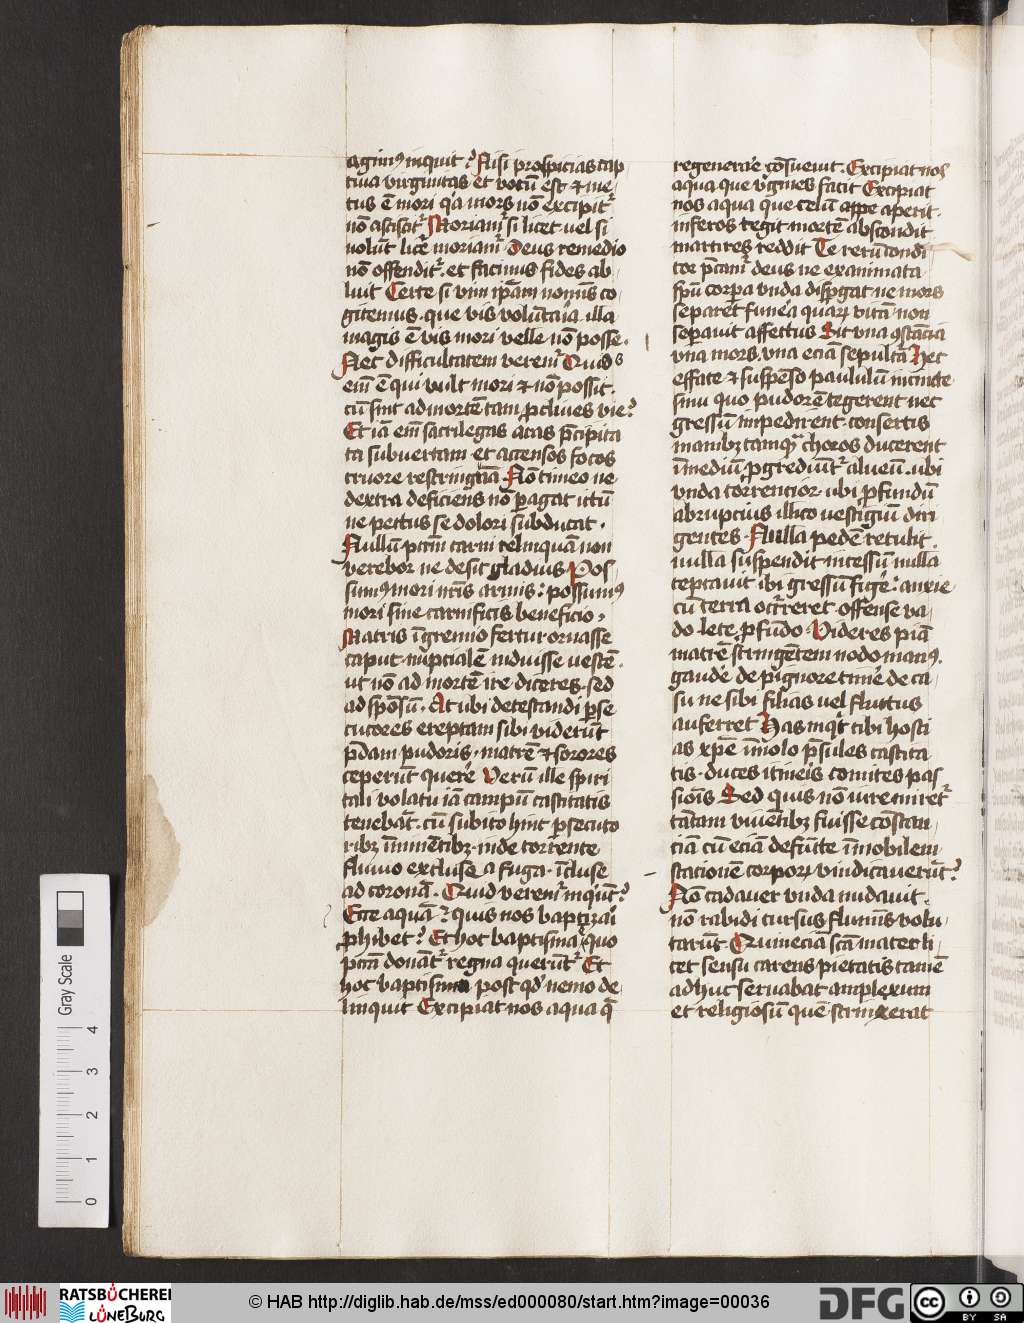 agim9 inquit? Nisi prospicias cap
tiua virginitas et votū est ⁊ me
tus ē mori q̄a mors nō excipit᷑
nō asciscit᷑ Moriam᷑ si licet vel si
nolūt licē moriam᷑ Deus remedio
nō offendit᷑ et facinus fides ab
luit Certe si vim ip̄am nomīs co
gitemus que vis volūtaīa illa
magis ē vis mori velle nō posse
Nec difficultatem verem᷑ Quid
em̄ ē qui vult mori ⁊ nō possit
cū sint ad mortē tam p̄cliues vie?
Et iā em̄ sacrilegas aras p̄cipita
ta subuertam et accensos focos
cruore restringuā Nō timeo ne
dextra deficiens nō ꝑagat ictū
ne pectus se dolori subducat
Nullū pctm̄ carni relinquā non
verebor ne desit gladius Pos
sum9 mori nrīs armis possum9
mori sine carnificis beneficio
Matris ī gremio fertur ornasse
caput nuptialē induisse vestē
ut nō ad mortē ire diceres sed
ad spōsū At ubi detestandi ꝑse
cutores ereptam sibi viderūt
p̄dam pudoris matrē ⁊ sorores
ceperūt querē Verū ille spiri
tali volatu iā campū castitatis
tenebāt cū subito hinc ꝑsecuto
ribȝ īminētibȝ inde torrente
fluuio excluse a fuga īcluse
ad coronā Quid verem᷑ inqiūt?
Ecce aquā? quis nos baptizai
ꝓhibet? Et hoc baptisma quo
pctā donāt᷑ regna querūt᷑ Et
hoc baptisma post qd̄ nemo de
linquit Excipiat nos aqua q̄
regenerare cōsueuit Excipiat nos
aqua que v̓gines facit Excipiat
nos aqua que celū aꝑpe aperit
inferos tegit mortē abscondit
martires reddit Te rerū condi
tor p̄cam᷑ deus ne exanimata
spū corꝑa vnda disꝑgat ne mors
separet funēa quarꝫ vitā non
seꝑauit affectus Sit vna ꝯstācia
vna mors vna eciā sepultā Hec
effate ⁊ suspēso paululū incincte
sinu quo pudorē tegerent nec
gressū impedirent consertis
manibȝ tamq̄ choros ducerent
ī mediū ꝓgrediūt᷑ alueū ubi
vnda torrentior ubi ꝓfundū
abrupcius illico vestigiū diri
gentes Nulla pedē retulit
nulla suspendit incessū nulla
teptauit ibi gressū figē anxie
cū terra ocr̄reret offense va
do lete ꝓfūdo Videres piā
matrē stringētem nodo man9
gaudē de pignore timē de ca
su ne sibi filias uel fluctus
auferret Has inqt᷑ tibi hosti
as xp̄e īmolo p̄sules castita
tis duces itineīs comites pas
sionīs Sed quis nō iure miret᷑
tātam viuentibȝ fuisse cōstan
ciā cū eciā defūcte īmobilem
stacionē corporꝫ vindicauerūt?
Nō cadauer vnda nudauit
nō rabidi cursus fluminis volu
tarūt Quinecia sctā mater li
cet sensu carens pietatis tamē
adhuc seruabat amplexum
et religiosū quē strinxerat
Gray Scale
0 1 2 3 4
RATSBÜCHEREI
LÜNEBURG
© HAB http://diglib.hab.de/mss/ed000080/start.htm?image=00036
DFG
cc BY SA